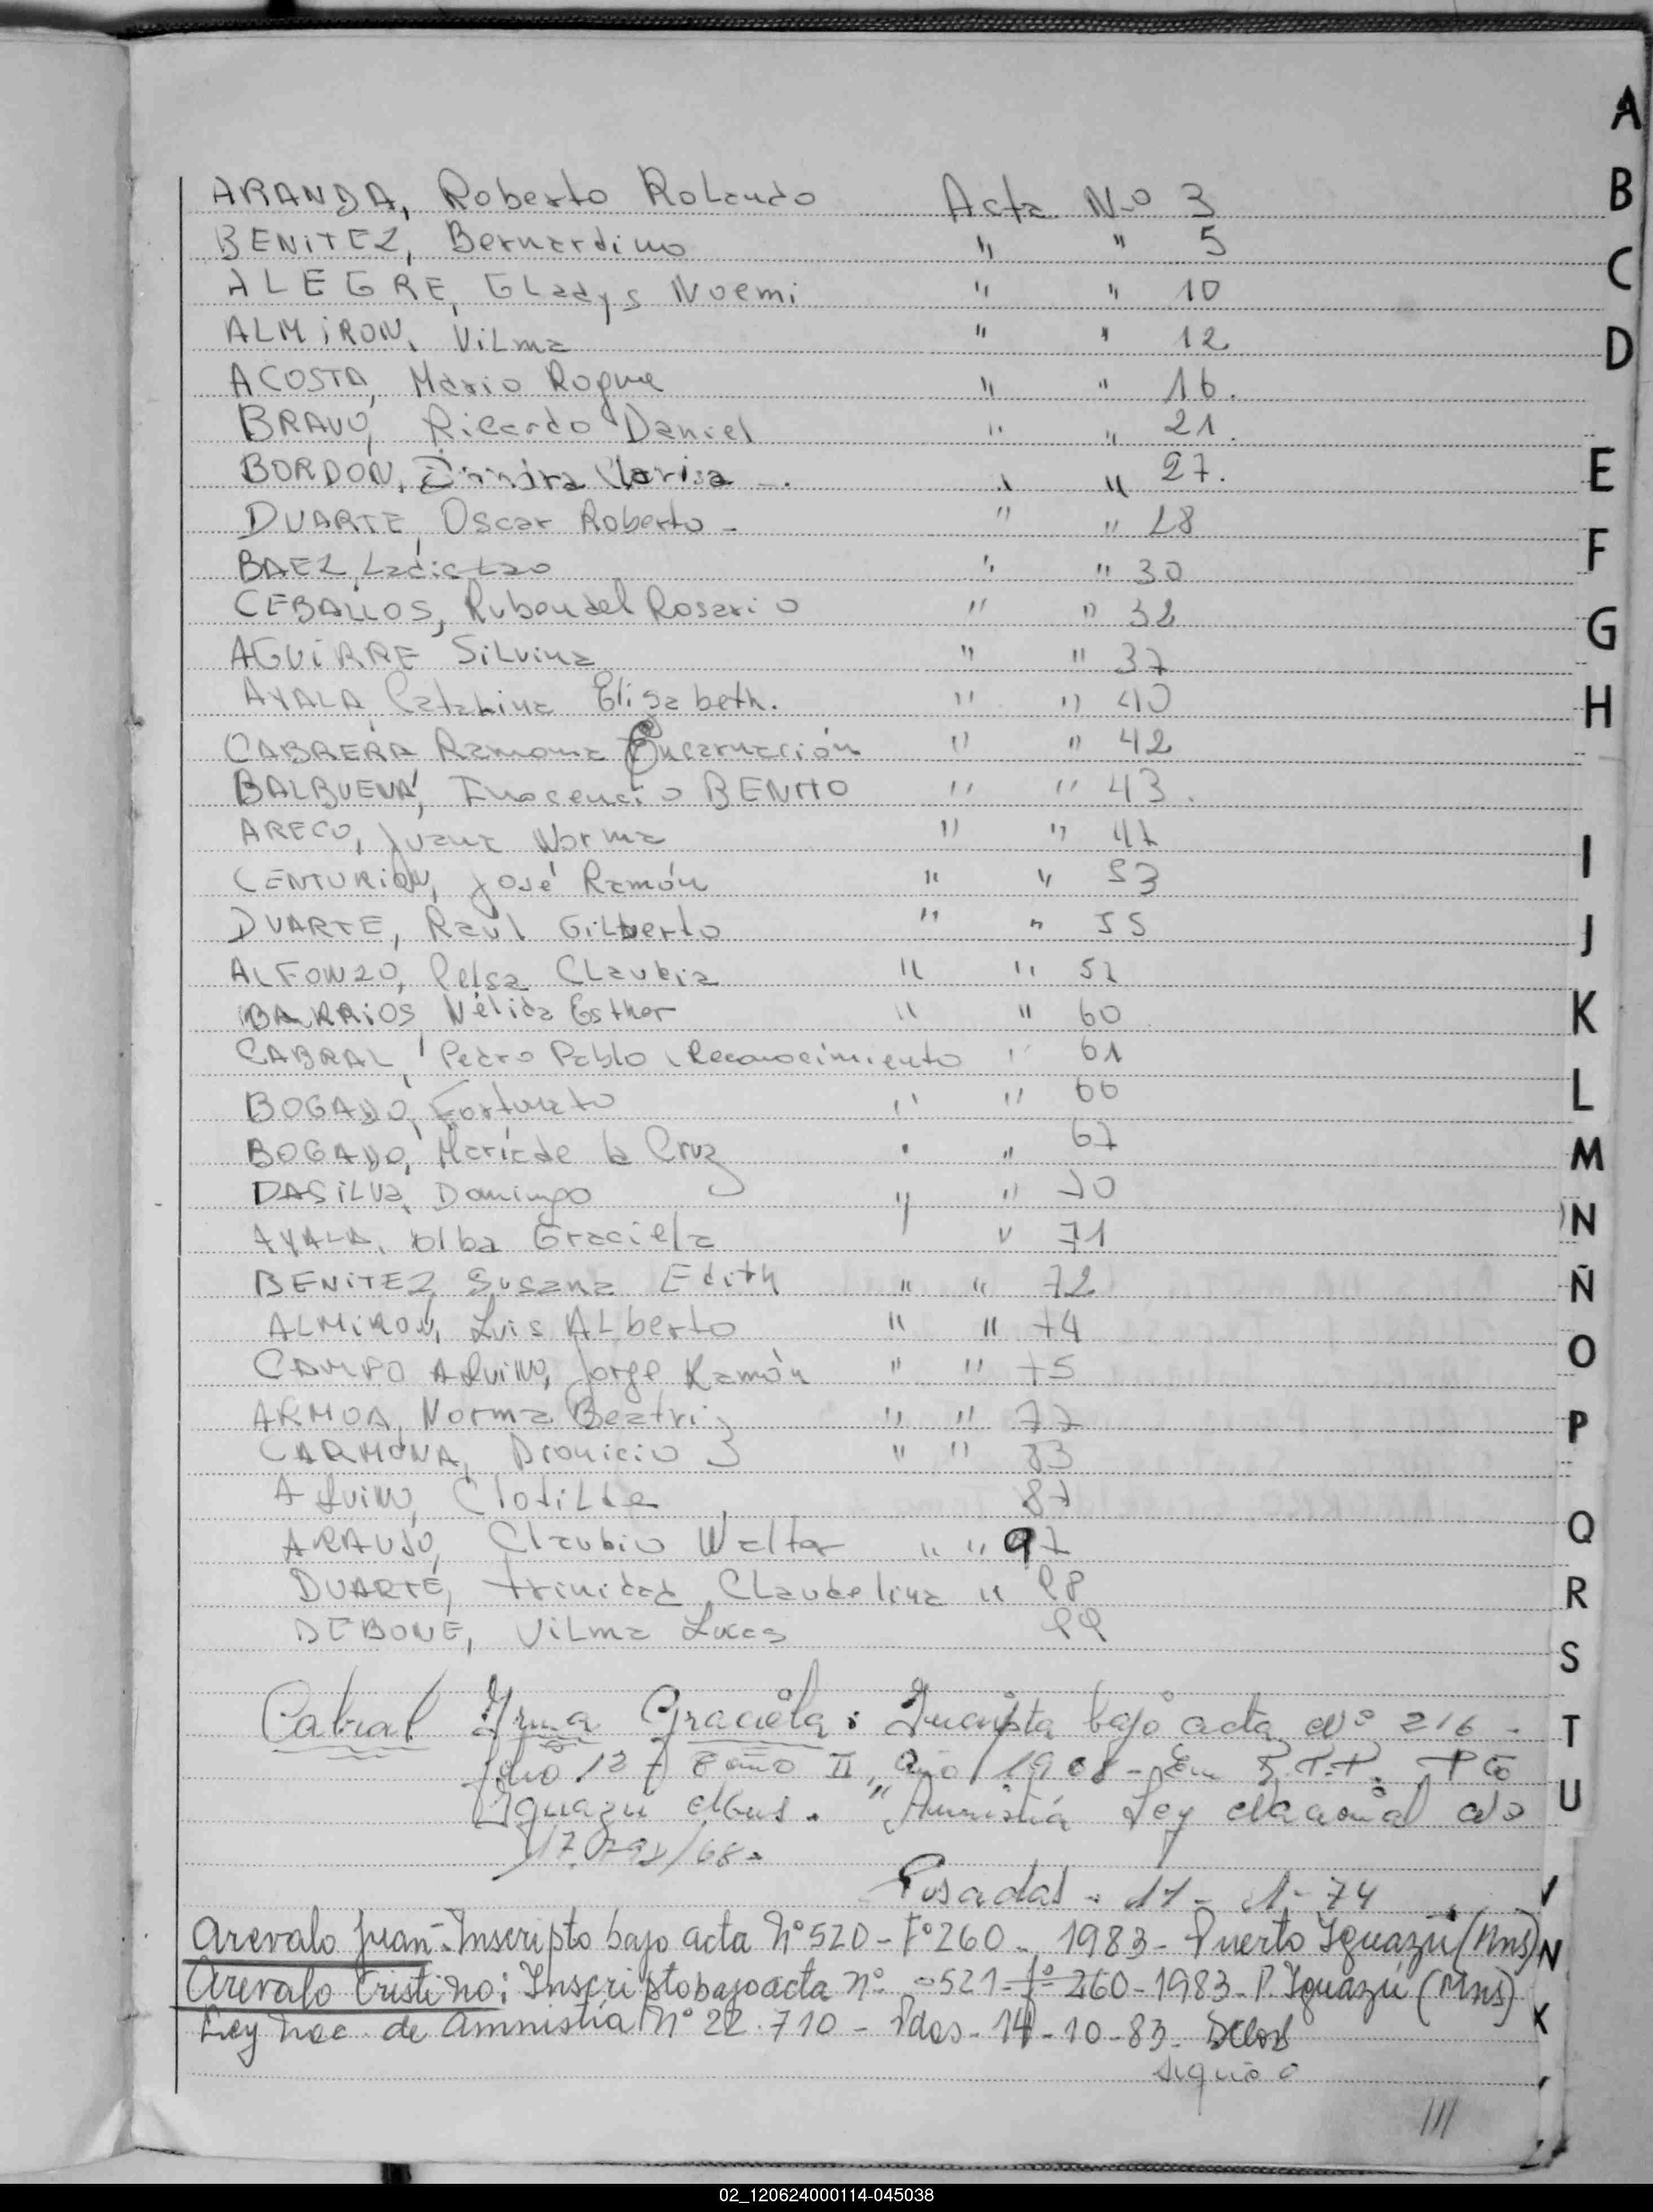 A
B
C
D
E
F
G
H
I
J
K
L
M
N
Ñ
O
P
Q
R
S
T
U
ARANDA, Roberto Rolando Acta N.o 3
BENITEZ, Bernardino " " 5
ALEGRE, Gladys Noemi " " 10
ALMIRON, Vilma " " 12
ACOSTA, Mario Roque " " 16.
BRAVO, Ricardo Daniel " " 21.
BORDON, Clarisa " " 27.
DUARTE, Oscar Roberto - " " 28
BAEZ, Ladislao " " 30
CEBALLOS, Ruben del Rosario " " 32
AGUIRRE Silvina " " 37
AYALA, Catalina Elisabeth. " " 40
CABRERA Ramona Encarnación " " 42
BALBUENA, Inocencio BENITO " " 43.
ARECO, Juana Norma " " 47
CENTURION, José Ramón " " 53
DUARTE, Raúl Gilberto " " 55
ALFONZO, Claudia " " 57
BARRIOS, Nélida Esther " " 60
CABRAL, Pedro Pablo (Reconocimiento " 61
BOGADO, Fortunato " " 66
BOGADO, María de la Cruz " " 67
DASILVA, Domingo " " 70
AYALA, Olba Graciela " 71
BENITEZ, Susana Edith " " 72
ALMIRON, Luis Alberto " " 74
CAMPO AQUINO, Jorge Ramón " " 75
ARMOA, Norma Beatriz " " 77
CARMONA, Dionicio " " 83
AQUINO, Clotilde 87
ARAUJO, Claudio Walter " " 97
DUARTE, Trinidad Claudelina " 98
DEBONE, Vilma Lucas 99
Cabral Irma Graciela: Inscripta bajo acta Nº 216 -
folio 127 Tomo II, año 1968 - En R.P.P. Pto
Iguazú Mnes. "Amnistía Ley Nacional Nº
17.  /68.
Posadas - 11 - 1 - 74
Arevalo Juan - Inscripto bajo acta Nº 520 - Fº 260 - 1983 - Puerto Iguazú (Mns)
Arevalo Cristino: Inscripto bajo acta nº - 521 - fº 260 - 1983 - P. Iguazú (Mns)
Ley Nac. de Amnistía Nº 22.710 - Pdas - 14 - 10 - 83 -
///
02_120624000114-045038